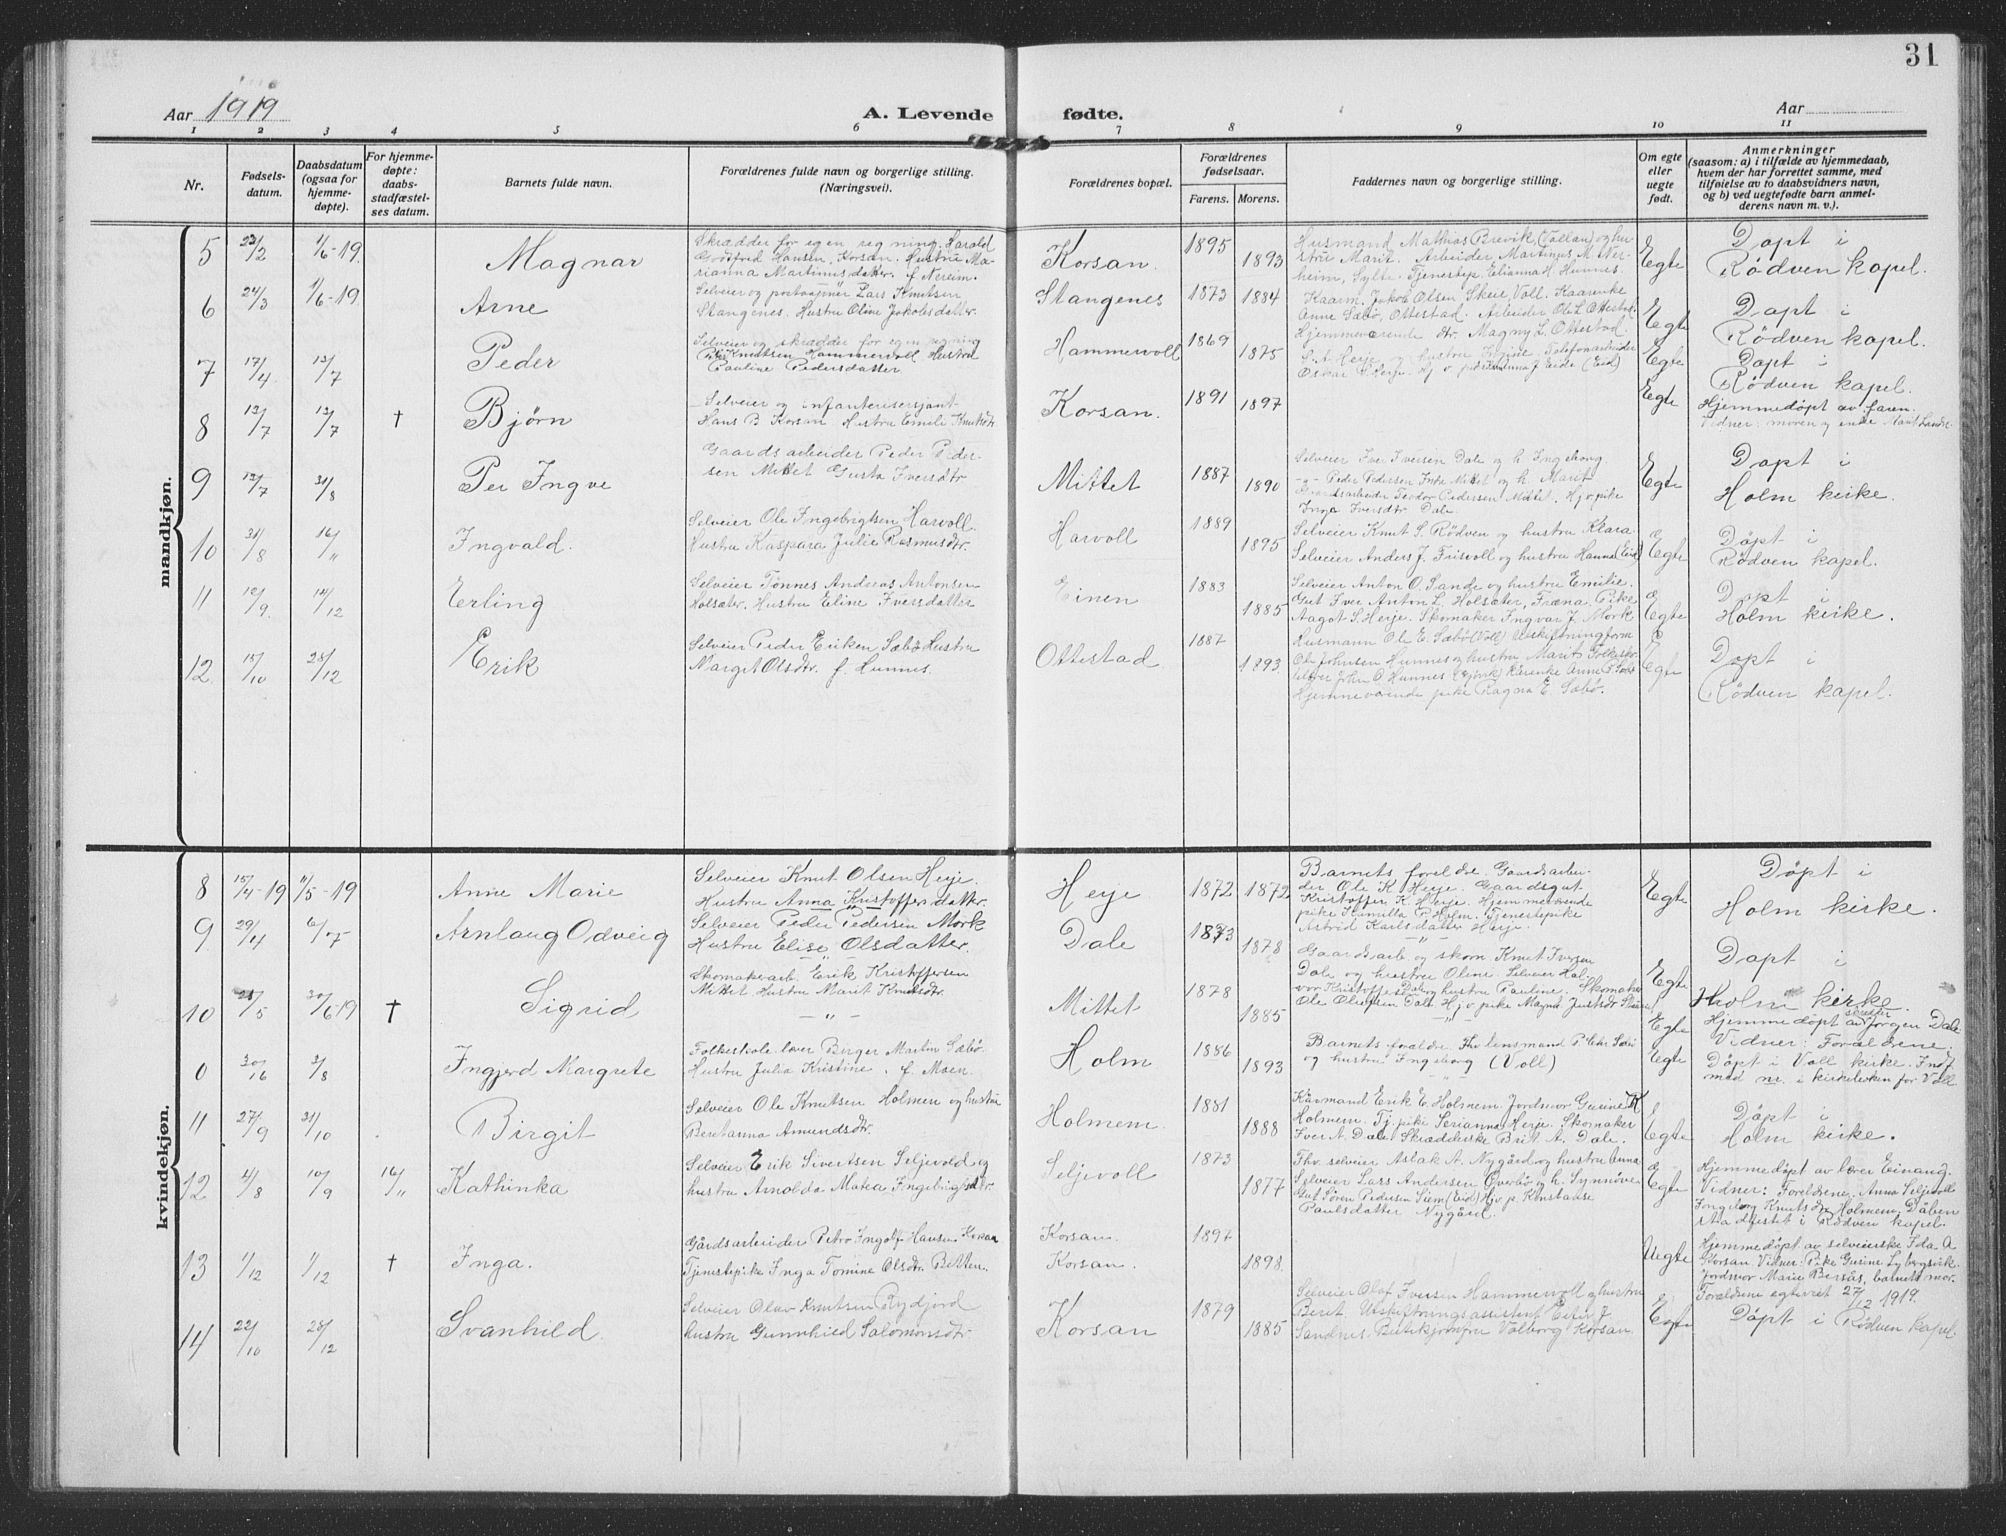 31
Aar 1919
A. Levende fødte.
Aar
1 2 3 4 5 6 7 8 9 10 11
Nr.
Fødsels-
datum.
Daabsdatum
(ogsaa for
hjemme-
døpte).
For hjemme-
døpte:
daabs-
stadfæstel-
ses datum.
Barnets fulde navn.
Forældrenes fulde navn og borgerlige stilling.
(Næringsvei).
Forældrenes bopæl.
Forældrenes
fødselsaar.
Farens. Morens.
Faddernes navn og borgerlige stilling.
Om egte
eller
uegte
født.
Anmerkninger
(saasom: a) i tilfælde av hjemmedaab,
hvem der har forrettet samme, med
tilføielse av to daabsvidners navn,
og b) ved uegtefødte barn anmel-
derens navn m. v.).
mandkjøn.
5 23/2 1/6-19. Magnar
Skrædder for egen regning Harald
Godtfred Hansen, Korsan. Hustru Ma-
rianna Martinusdatter f. Nereim.
Korsan. 1895 1893
Husmand Mathias Brevik, (Vollan) og hu-
stru Marit. Arbeider Martinus M. Ner-
heim, Sylte. Tjenestep. Elianna H. Hunnes.
Egte
Døpt i
Rødven kapel.
6 24/3 1/6-19 Arne
Selveier og postaapner Lars Knutsen
Stangenes. Hustru Oline Jakobsdatter.
Stangenes 1873 1884
Kaarm. Jakob Olsen Skeie, Voll. Kaarenke
Anne Sæbø, Ottestad. Arbeider Ole L. Ottestad.
Hjemmeværende dtr. Magny L. Ottestad.
Egte
Døpt i
Rødven kapel.
7 17/4 13/7 Peder
Selveier og skrædder for egen regning
Knudtsen Hammervoll Hustru
Pauline Pedersdatter
Hammervoll 1869 1875
Herje og hustru Telefonarbeider
Oskar Herje. Hj. v. Eide (Eid)
Egte
Døpt i
Rødven kapel.
8 12/7 13/7 † Bjørn
Selveier og infanterisersjant
Hans B Korsan Hustru Emilie Knutsdtr.
Korsan. 1891 1897
Egte
Hjemmedøpt av faren.
Vidner: moren og enke Marit
9 13/7 31/8 Per Ingve
Gaardsarbeider Peder Peder-
sen Mittet Gusta Iversdtr.
Mittet 1887 1890
Selveier Iver Iversen Dale og h. Ingeborg
-"- Peder Pedersen Mittet og h. Marit
Gaardsarbeider Teodor Pedersen Mittet. Hj. v. pike
Inga Iversdtr. Dale.
Egte
Døpt i
Holm kirke.
10 31/8 16/" Ingvald.
Selveier Ole Ingebrigtsen Harvoll.
Hustru Kaspara Julie Rasmusdtr.
Harvoll 1889 1895
Selveier Knut S. Rødven og hustru Klara
Selveier Anders J. Frisvoll og hustru Hanna (Eid)
Egte
Døpt i
Rødven kapel.
11 12/9. 14/12 Erling
Selveier Tønnes Andreas Antonsen
Holsæter. Hustru Eline Iversdatter
Einen 1883 1885
Selveier Anton O. Sande og hustru Emilie.
Gut Iver Anton L. Holsæter, Fræna. Pike
Aagot S. Herje. Skomaker Ingvar J. Mork
Egte
Døpt i
Holm kirke.
12. 15/10 28/12 Erik
Selveier Peder Eriken Sæbø Hustru
Margit Olsdtr. f Hunnes.
Ottestad 1887 1893.
Husmann Ole E. Sæbø (Voll) Utskiftningform
Ole Johnsen Hunnes og hustru Marit.
John O. Hunnes Kærenke Anne P. Sæbø
Hjemmeværende pike Ragna E. Sæbø.
Egte
Døpt i
Rødven kapel.
kvindekjøn.
8 15/4-19 11/5-19 Anne Marie
Selveier Knut Olsen Herje.
Hustru Anna Kristoffersdatter.
Herje 1872 1872
Barnets foreldre. Gaardsarbei-
der Ole K. Herje. Gaardsgut
Kristoffer K. Herje. Hjemmeværende
pike Kamilla P. Holm. Tjenestepike
Astrid Karlsdatter Herje.
Egte
Døpt i
Holm kirke.
9 29/4 6/7 Arnlaug Odveig
Selveier Peder Pedersen Mork
Hustru Elise Olsdatter.
Dale 1873 1878
Gaardsarb og skom Knut Iversen
Dale og hustru Oline. Selveier Hal-
vor Kristoffersen Dale og hustru Pauline. Skomaker
Ole Olafsen Dale Hj. v. pike Magna
Egte
Døpt i
Holm kirke.
10 28/5 30/6-19 † Sigrid
Skomakerarb. Erik Kristoffersen
Mittet Hustru Marit Knutsdtr.
-"-
Mittet 1878 1885
-"-
Egte
Hjemmedøpt av skræder Jørgen Dale
Vidner: Foreldrene.
0 30/16 3/8 Ingjerd Margrete
Folkeskole lærer Birger Martin Sæbø.
Hustru Julia Kristine. f. Moen.
Holm 1886 1893
Barnets foreldre. Fhv. lensmand P. Sæbø
og hustru Ingeborg (Voll)
Egte
Døpt i Voll kirke. Indf.
med nr. i kirkeboken for Voll
11 27/9 31/10 Birgit
Selveier Ole Knutsen Holmen og hustru
Beritanna Amundsdtr.
Holmem. 1881 1888
Kårmand Erik E. Holmem. Jordmor Gurine K
Holmem. Tj. pike Serianna Herje. Skomaker
Iver A. Dale. Skrædderske Brit A. Dale.
Egte
Døpt i
Holm kirke.
12 4/8 10/9 16/" Kathinka
Selveier Erik Sivertsen Seljevold og
hustru Arnolda Matea Ingebrigtsdtr.
Seljevoll 1873 1877
Fhv. selveier Aslak A. Nygård og hustru Anna
Selveier Lars Andersen Øverbø og h. Synnøve
Gut Søren Pedersen Siem (Eid) Hj. v. p. Konstanse
Paulsdatter Nygård.
Egte
Hjemmedøpt av lærer Einang.
Vidner: Foreldrene. Anna Seljevoll
Ingeborg Knutsdtr. Holmem. Dåben
stadfestet i Rødven kapel.
13 1/12 1/12 † Inga.
Gårdsarbeider Petro Ingolf Hansen Korsan
Tjenestepike Inga Tomine Olsdtr. Betten.
Korsan. 1897
Korsan. 1898
Uegte
Hjemmedøpt av selveierske Ida A
Korsan. Vidner: Pike Gurine Lybergsvik.
Jordmor Marie Bersås, barnets mor.
Foreldrene egteviet 27/12 1919.
14 22/10 28/12 Svanhild.
Selveier Olav Knutsen Rydjord
hustru Gunnhild Salomonsdtr.
Korsan 1879 1885
Selveier Olaf Iversen Hammervoll og hustru
Beret. Utskiftningsassistent Peter J.
Sandnes. Butikjomfru Valborg Korsan.
Egte
Døpt i Rødven kapel.